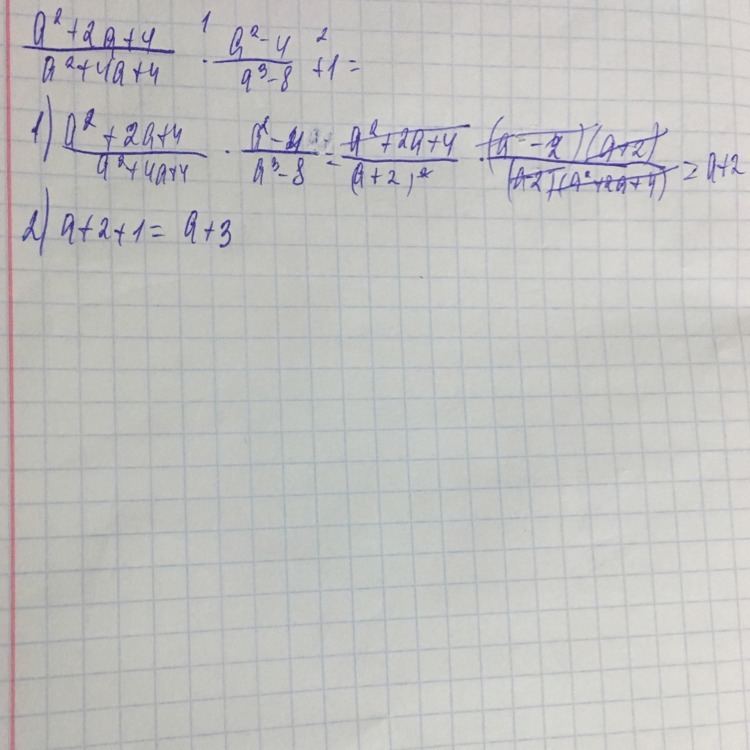 (a²+2a+4)/(a²+4a+4) ·¹ (a²-4)/(a³-8) +² 1 =
1) (a²+2a+4)/(a²+4a+4) · (a²-4)/(a³-8) = (a²+2a+4)/(a+2)² · ((a-2)(a+2))/((a-2)(a²+2a+4)) = a+2
2) a+2+1 = a+3